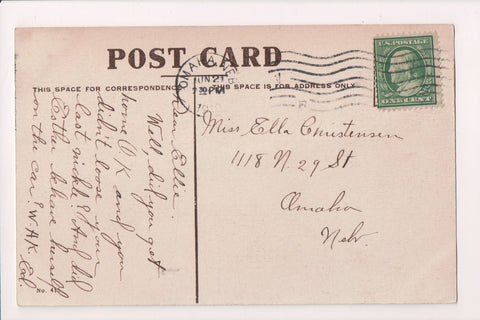 POST CARD
THIS SPACE FOR CORRESPONDENCE
THIS SPACE IS FOR ADDRESS ONLY
OMAHA, NEB.
JUN 21
PM
U.S. POSTAGE
ONE CENT
Dear Ellie.
Well did you get
home O.K. and you
didn't loose your
last nickle? And did
Esther behave herself
on the car? W.A.K.
Miss Ella Christensen
1118 N. 29 St
Omaha
Nebr.
No.